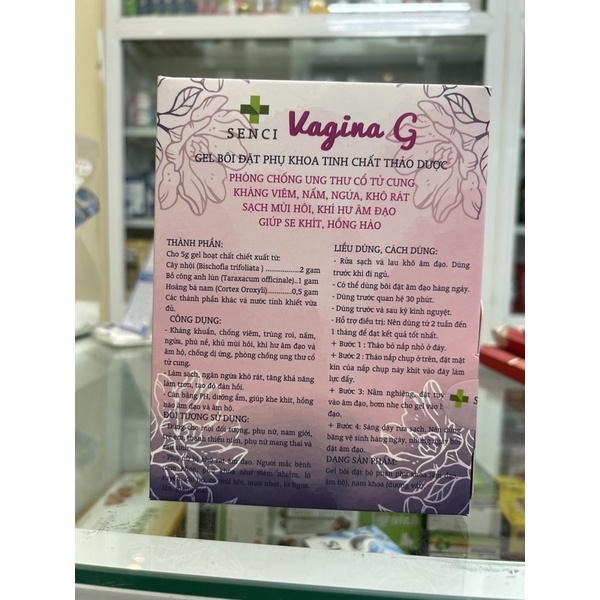 SENCI
Vagina G
GEL BÔI ĐẶT PHỤ KHOA TINH CHẤT THẢO DƯỢC
PHÒNG CHỐNG UNG THƯ CỔ TỬ CUNG
KHÁNG VIÊM, NẤM, NGỨA, KHÔ RÁT
SẠCH MÙI HÔI, KHÍ HƯ ÂM ĐẠO
GIÚP SE KHÍT, HỒNG HÀO
THÀNH PHẦN:
Cho 5g gel hoạt chất chiết xuất từ:
Cây nhội (Bischofia trifoliata )...............2 gam
Bồ công anh lùn (Taraxacum officinale)..1 gam
Hoàng bá nam (Cortex Oroxyli)............0,5 gam
Các thành phần khác và nước tinh khiết vừa
đủ.
CÔNG DỤNG:
- Kháng khuẩn, chống viêm, trùng roi, nấm,
ngứa, phù nề, khử mùi hôi, khí hư âm đạo và
âm hộ, chống dị ứng, phòng chống ung thư cổ
tử cung.
- Làm sạch, ngăn ngừa khô rát, tăng khả năng
làm trơn, tạo độ đàn hồi.
- Cân bằng PH, dưỡng ẩm, giúp khe khít, hồng
hào âm đạo và âm hộ.
ĐỐI TƯỢNG SỬ DỤNG:
- Dùng cho mọi đối tượng, phụ nữ, nam giới,
thanh thiếu niên, phụ nữ mang thai và
âm đạo. Người mắc bệnh
LIỀU DÙNG, CÁCH DÙNG:
- Rửa sạch và lau khô âm đạo. Dùng
trước khi đi ngủ.
- Có thể dùng bôi đặt âm đạo hàng ngày.
- Dùng trước quan hệ 30 phút.
- Dùng trước và sau kỳ kinh nguyệt.
- Hỗ trợ điều trị: Nên dùng từ 2 tuần đến
1 tháng để đạt kết quả tốt nhất.
+ Bước 1 : Tháo bỏ nắp nhỏ ở đáy.
+ Bước 2 : Tháo nắp chụp ở trên, đặt mặt
kín của nắp chụp này khít vào đáy làm
lực đẩy.
+ Bước 3: Nằm nghiêng, đặt tuýp
vào âm đạo, bơm nhẹ cho gel vào
đạo.
+ Bước 4: Sáng dậy rửa sạch. Nên dùng
băng vệ sinh hàng ngày, những ngày bôi
đặt âm đạo.
DẠNG SẢN PHẨM:
Gel bôi đặt bộ phận phụ khoa
âm hộ), nam khoa (dương vật)
S